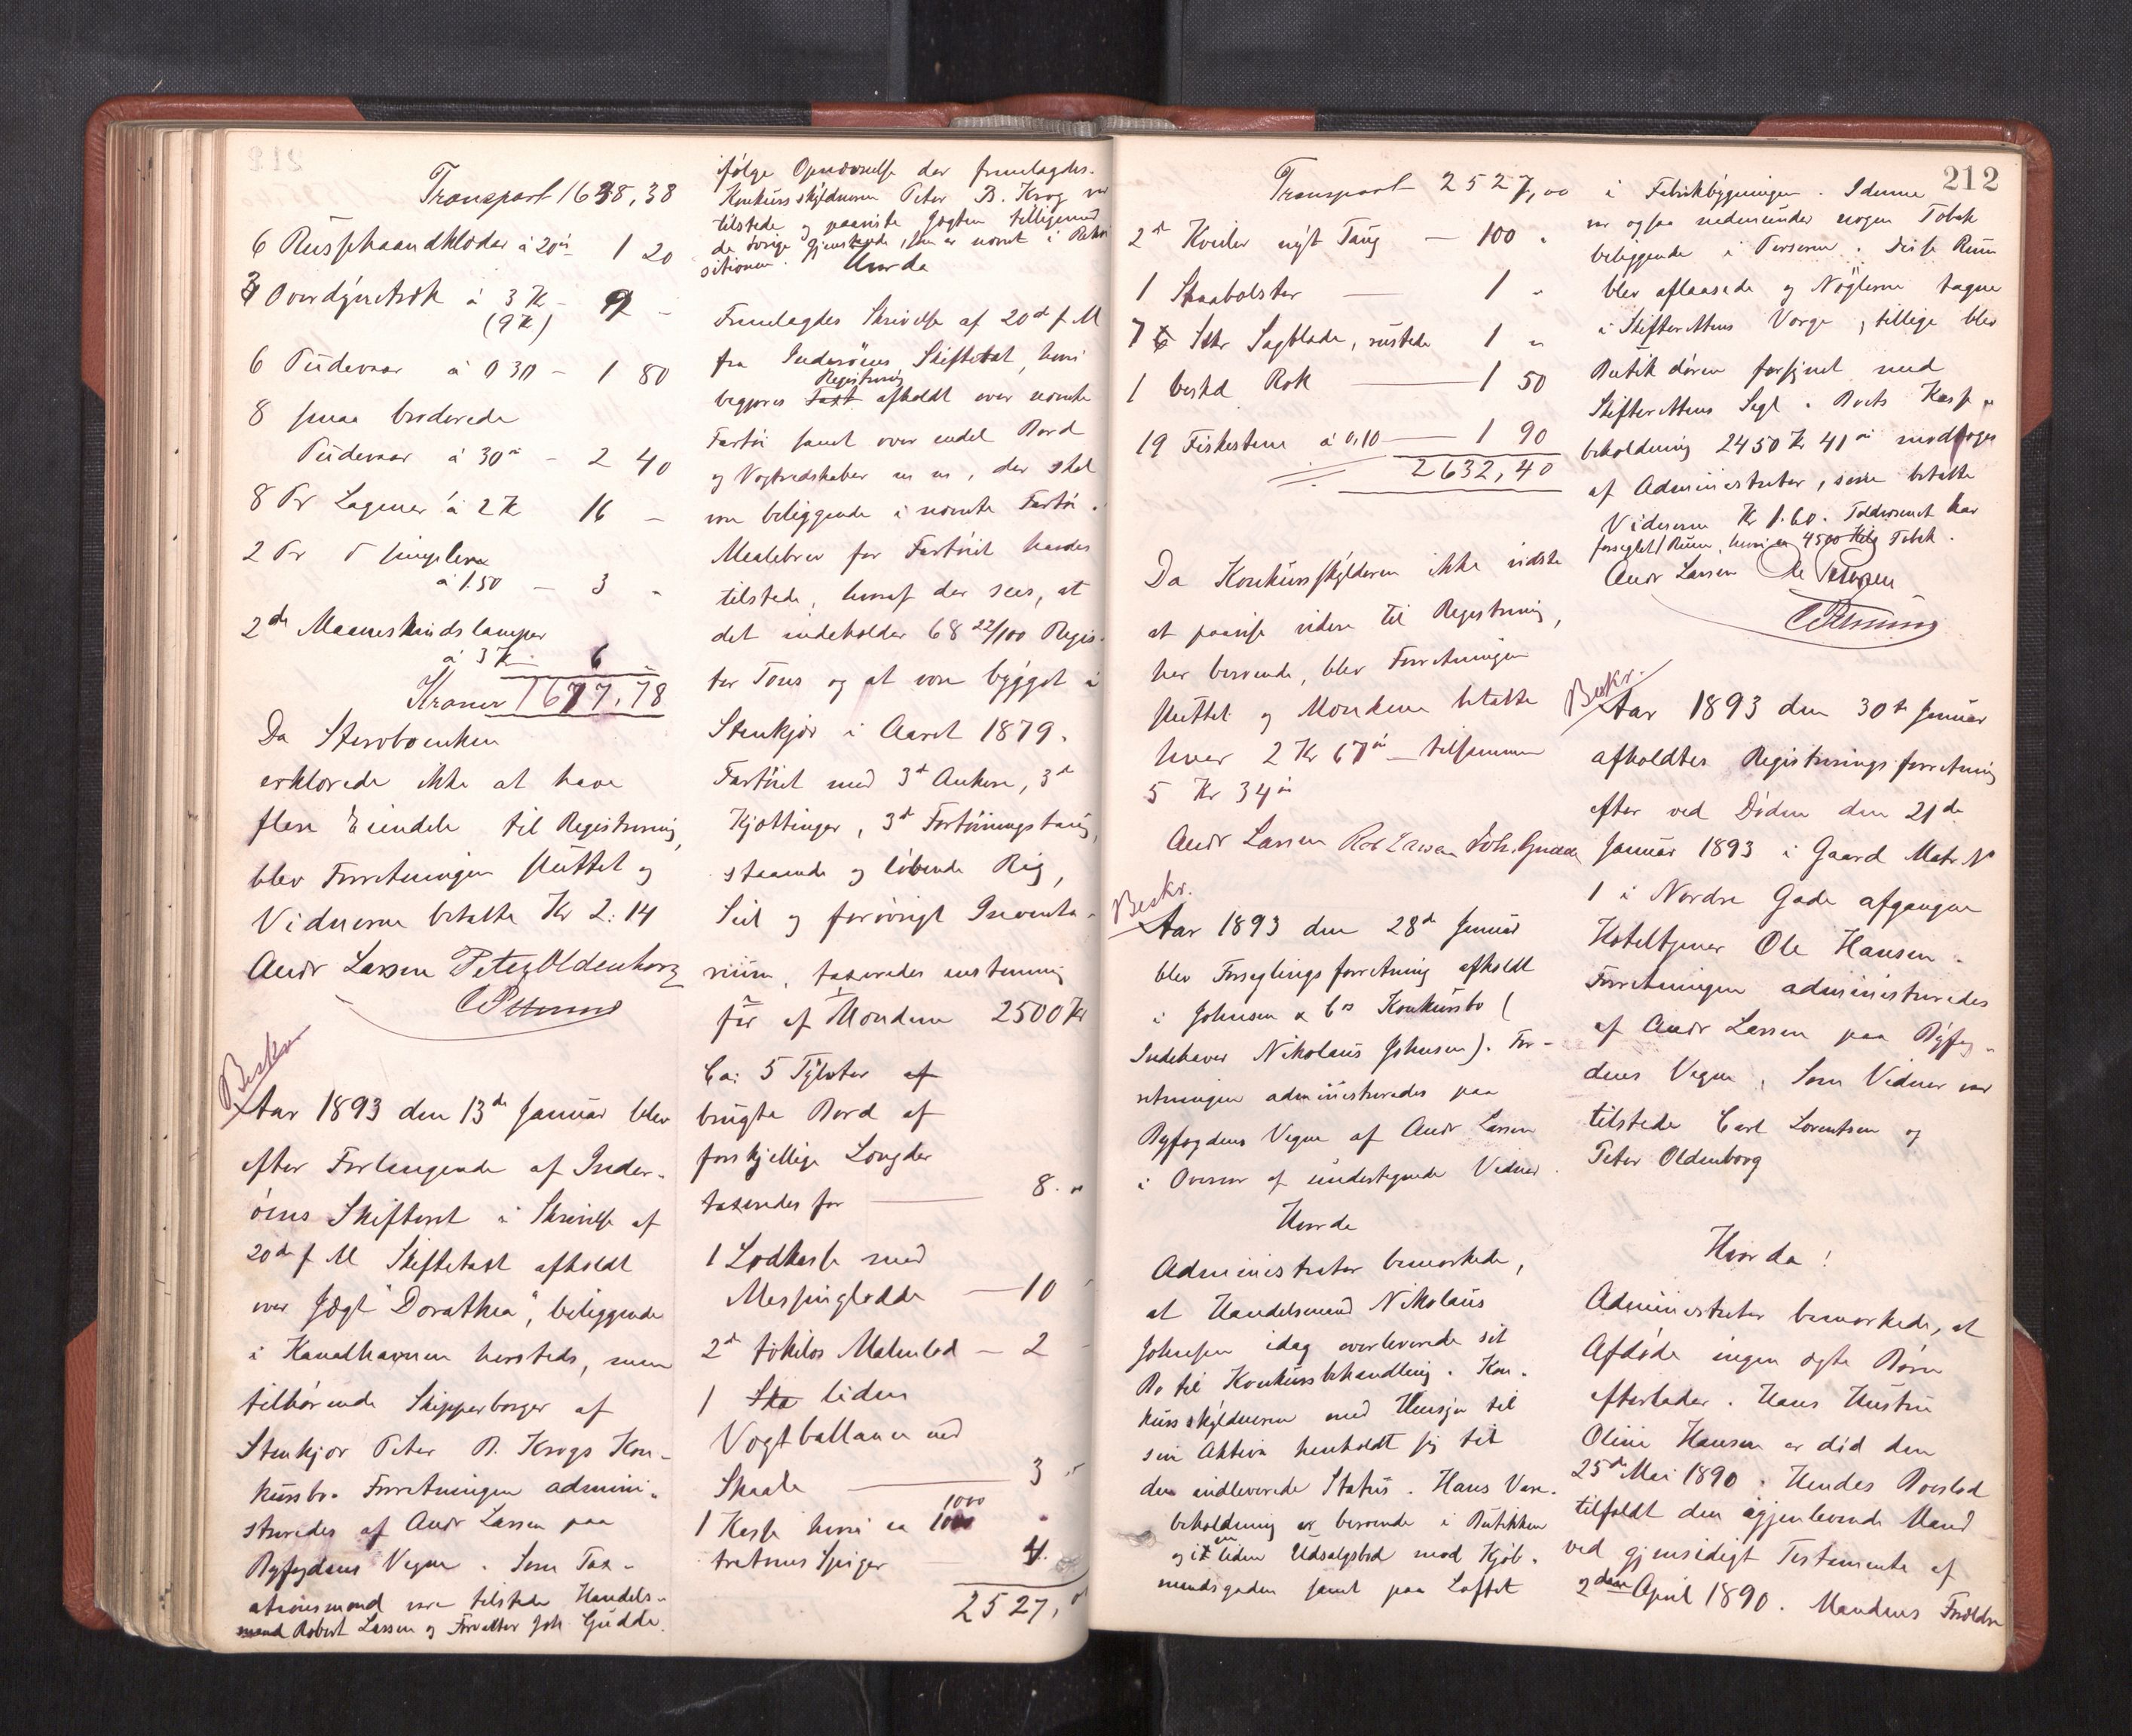 Transport 1638,38
6 Russhaandklæder à 20 ø 1 20
3 Overdynetræk à 3 Kr - 9 -
(9 Kr)
6 Pudevaar à 0 30 - 1 80
8 smaa broderede
Pudevaar à 30 ø - 2 40
8 Pr Lagener à 2 Kr 16 -
2 Pr
à 1.50 - 3 -
2de Maaneskindslamper
à 3 Kr 6 -
Kroner 1677,78
Da Stervboenken
erklærede ikke at have
flere Eiendele til Registrering,
blev Forretningen sluttet og
Vidnerne betalte Kr 2.14
Andr Larsen Peter Oldenborg
Beskr
Aar 1893 den 13de Januar blev
efter Forlangende af Inder-
øens Skifteret i Skrivelse af
20de f M Skiftetaxt afholdt
over Jægt "Dorathea", beliggende
i Kanalhavnen hersteds, som
tilhørende Skipperborger af
Stenkjær Peter B. Krogs Kon-
kursbo. Forretningen admini-
streredes af Andr Larsen paa
Byfogdens Vegne. Som Tax-
ationsmænd var tilstede Handels-
mænd Robert Larsen og Forvalter Joh. Gudde.
ifølge Opnævnelse der fremlagdes.
Konkursskyldneren Peter B. Krog var
tilstede og paaviste Jægten tilligemed
de øvrige Gjenstande, som er nævnt i Rekvi
sitionen. Hvorda
Fremlagdes Skrivelse af 20de f M
fra Inderøens Skifteret, hvori
Registrering
begjæres Taxt afholdt over nævnte
Fartøi samt over endel Bord
og Vægtredskaber m m, der skal
være beliggende i nævnte Fartøi.
Maalebrev for Fartøiet havdes
tilstede, hvoraf der sees, at
det indeholder 68 22/100 Regis-
ter Tons og at være bygget i
Stenkjær i Aaret 1879.
Fartøiet med 3de Ankere, 3de
Kjættinger, 3de Fortøiningstaug,
staaende og løbende Rig,
Seil og forøvrigt Inventa-
rium, taxeredes enstemmig
for af Mændene 2500 Kr
Ca: 5 Tylvter af
brugte Bord af
forskjellige Længder
taxeredes for 8. "
1 Lodkasse med
Messinglodde - 10 -
2de Malmlod - 2 -
1 Ska liden
Vægtballance med
Skaale 3 -
1 Kasse hvori ca 1000
1000
tretoms Spiger 4.
2527,00
212
Transport 2527,00
2de Kveiler nyt Taug - 100 "
1 Skaabolster - 1 "
7 6 Stkr Sagblade, rustede 1 "
1 beskd Rok 1 50
19 Fiskestene à 0,10 1 90
2632,40
Da Konkursskyldneren ikke vidste
at paavise videre til Registrering,
her beroende, blev Forretningen
sluttet og Mændene betalte
hver 2 Kr 67 ø - tilsammen
5 Kr 34 ø
Andr Larsen Rob Larsen Joh. Gudde
Beskr.
Aar 1893 den 28de Januar
blev Forseglingsforretning afholdt
i Johnsen & Cos Konkursbo (
Indehaver Nikolaus Johnsen). For-
retningen administreredes paa
Byfogdens Vegne af Andr Larsen
i Overvær af undertegnede Vidner.
Hvorda
Administrator bemærkede,
at Handelsmand Nikolaus
Johnsen idag overleverede sit
Bo til Konkursbehandling. Kon-
kursskyldneren med Hensyn til
sin Aktiva henholdt sig til
den indleverede Status. Hans Vare-
beholdning er beroende i Butikken
og i en liden Udsalgsbod mod Kjøb-
mandsgaden samt paa Loftet
i Fabrikbygningen. I denne
var ogsaa nedenunder nogen Tobak
beliggende i Perserne. Disse Rum
blev aflaasede og Nøglerne tagne
i Skifterettens Værge, tillige blev
Butikdøren forsynet med
Skifterettens Segl. Boets Kasse-
beholdning 2450 Kr 41 ø modtoges
af Administrator, som betalte
Vidnerne Kr 1.60. Toldvæsenet har
forseglet 1 Rum, hvori ca 4500 Kilg Tobak.
Andr Larsen Ole Petersen
Beskr.
Aar 1893 den 30te Januar
afholdtes Registreringsforretning
efter ved Døden den 21de
Januar 1893 i Gaard Matr. No
1 i Nordre Gade afgangne
Hoteltjener Ole Hansen.
Forretningen administreredes
af Andr Larsen paa Byfog-
dens Vegne. Som Vidner var
tilstede Carl Lorentsen og
Peter Oldenborg
Hvorda!
Administrator bemærkede, at
Afdøde ingen ægte Børn
efterlader. Hans Hustru
Oline Hansen er død den
25de Mai 1890. Hendes Boeslod
tilfaldt den igjenlevende Mand
ved gjensidigt Testamente af
2den April 1890. Mandens Forældre